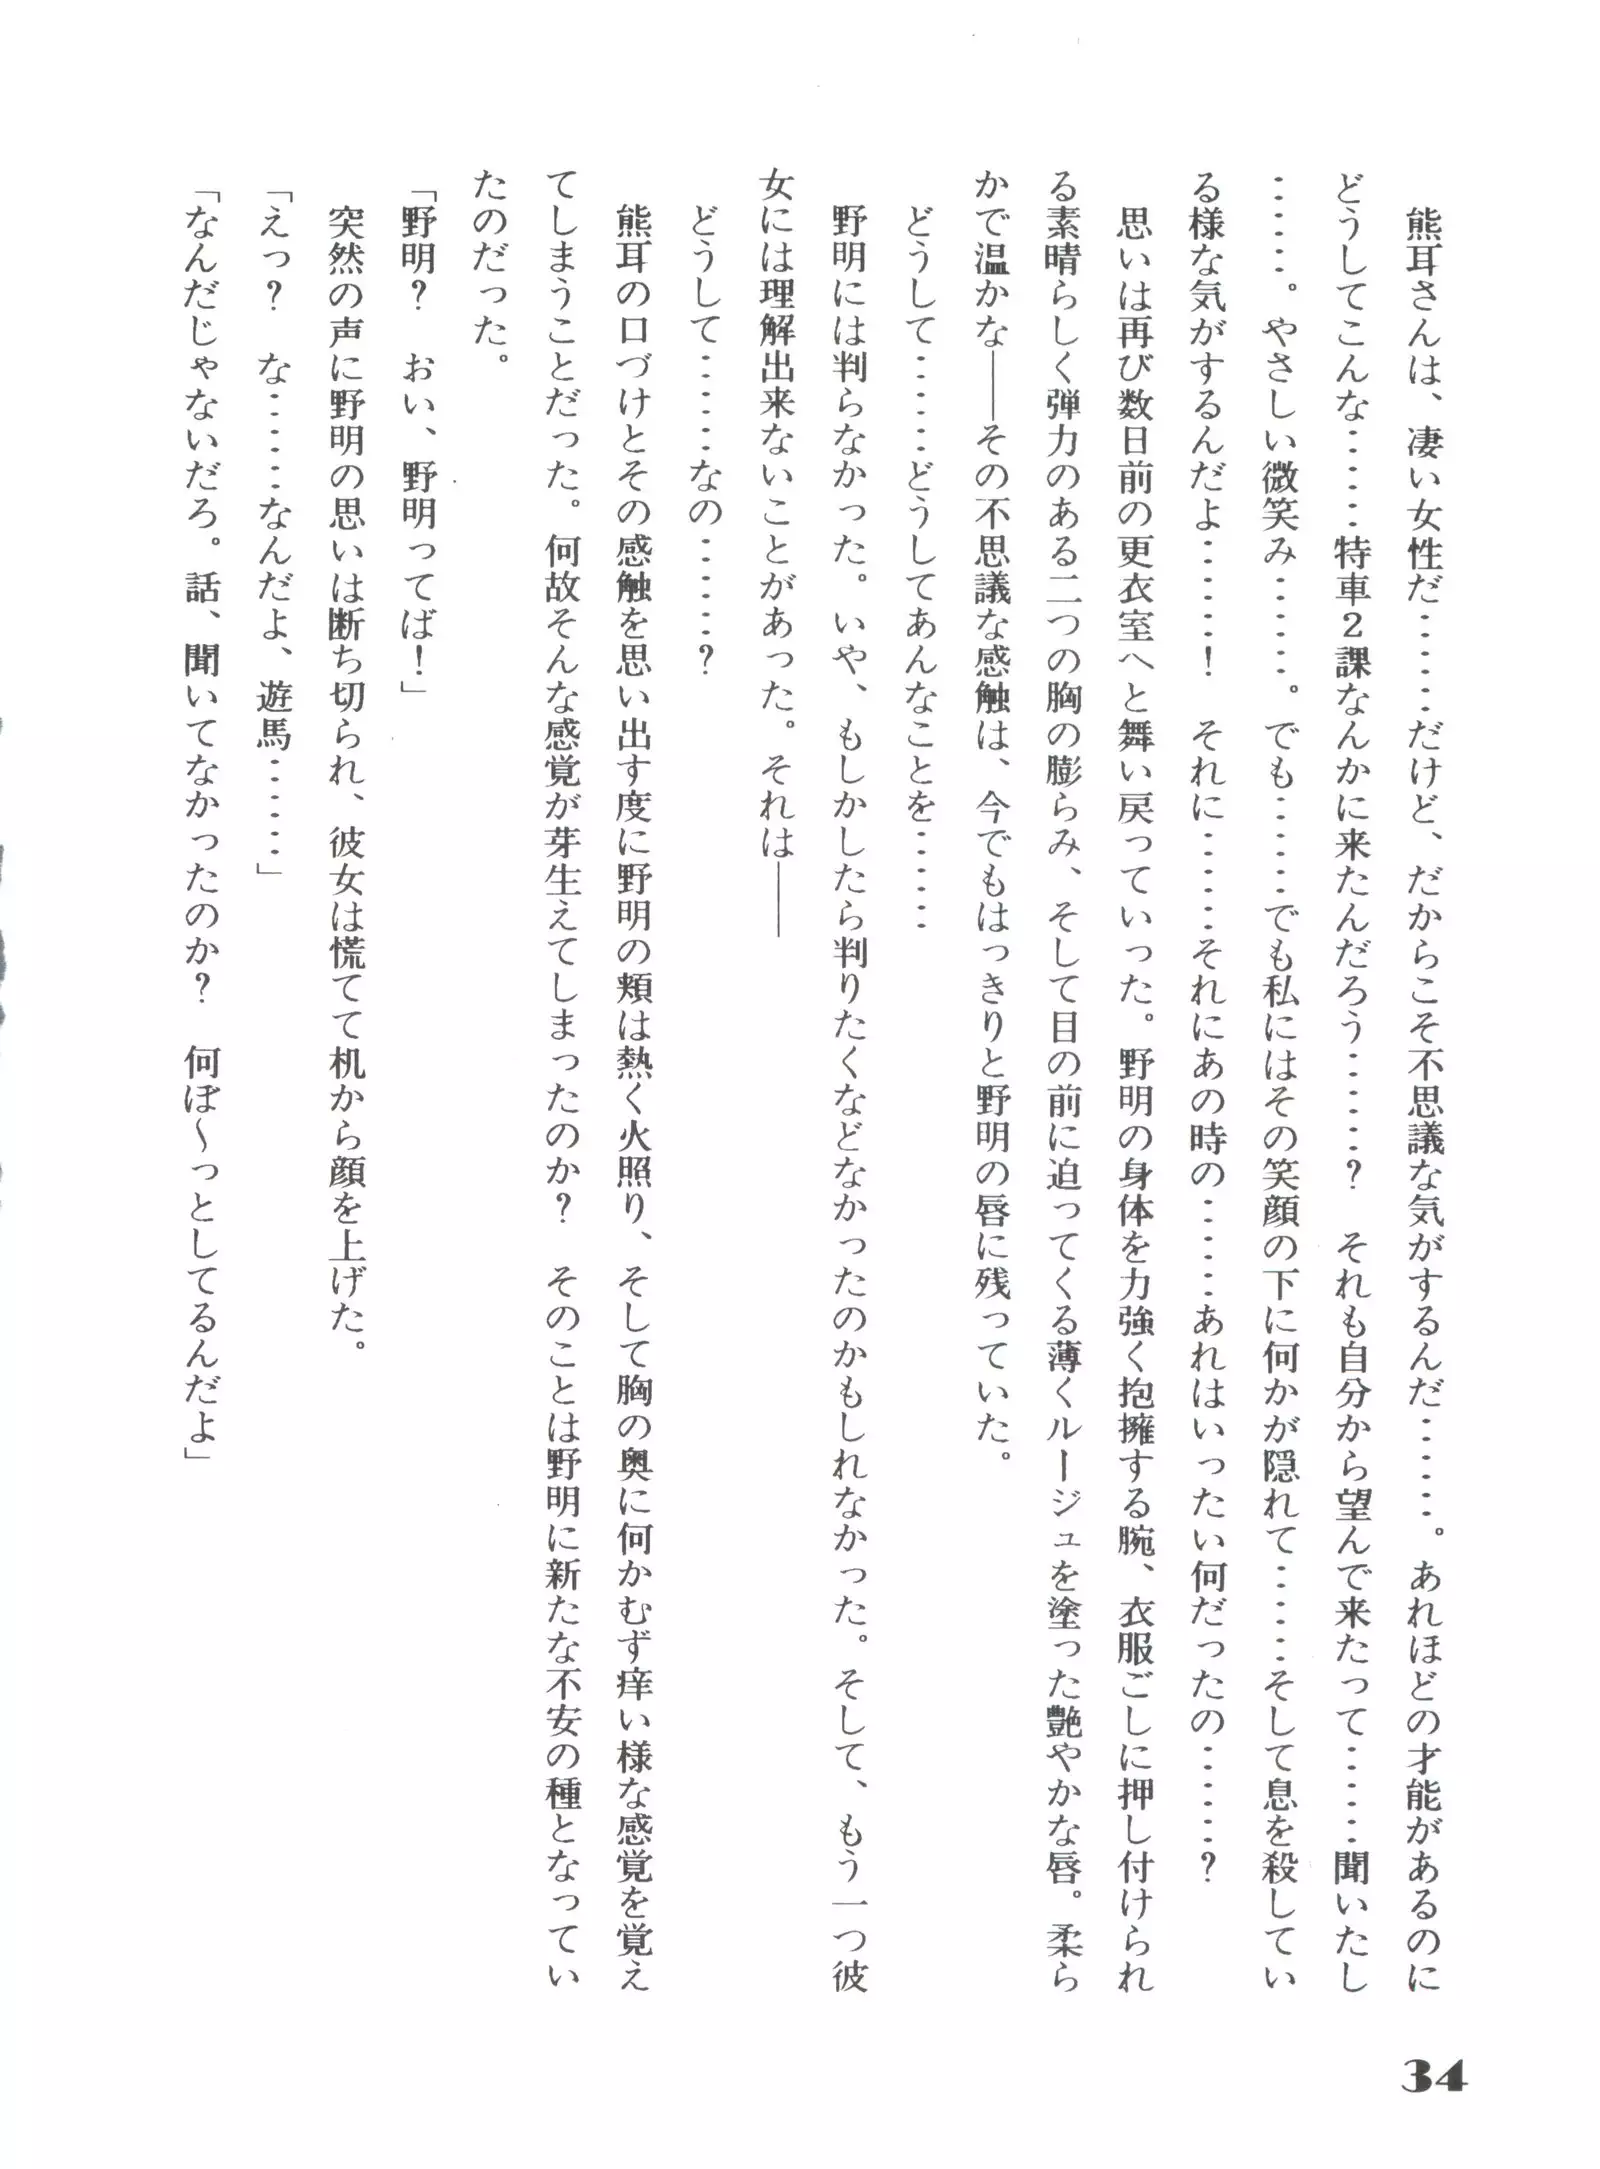 熊耳さんは、凄い女性だ……だけど、だからこそ不思議な気がするんだ……。あれほどの才能があるのに
どうしてこんな……特車２課なんかに来たんだろう……？　それも自分から望んで来たって……聞いたし
……。やさしい微笑み……。でも……でも私にはその笑顔の下に何かが隠れて……そして息を殺してい
る様な気がするんだよ……！　それに……それにあの時の……あれはいったい何だったの……？
思いは再び数日前の更衣室へと舞い戻っていった。野明の身体を力強く抱擁する腕、衣服ごしに押し付けられ
る素晴らしく弾力のある二つの胸の膨らみ、そして目の前に迫ってくる薄くルージュを塗った艶やかな唇。柔ら
かで温かな――その不思議な感触は、今でもはっきりと野明の唇に残っていた。
どうして……どうしてあんなことを……
野明には判らなかった。いや、もしかしたら判りたくなどなかったのかもしれなかった。そして、もう一つ彼
女には理解出来ないことがあった。それは――
どうして……なの……？
熊耳の口づけとその感触を思い出す度に野明の頬は熱く火照り、そして胸の奥に何かむず痒い様な感覚を覚え
てしまうことだった。何故そんな感覚が芽生えてしまったのか？　そのことは野明に新たな不安の種となってい
たのだった。
「野明？　おい、野明ってば！」
突然の声に野明の思いは断ち切られ、彼女は慌てて机から顔を上げた。
「えっ？　な……なんだよ、遊馬……」
「なんだじゃないだろ。話、聞いてなかったのか？　何ぼ～っとしてるんだよ」
34